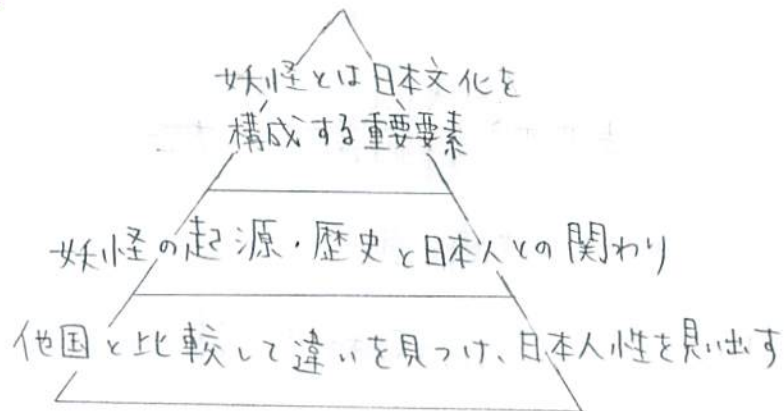 妖怪とは日本文化を
構成する重要要素
妖怪の起源・歴史と日本人との関わり
他国と比較して違いを見つけ、日本人性を見い出す